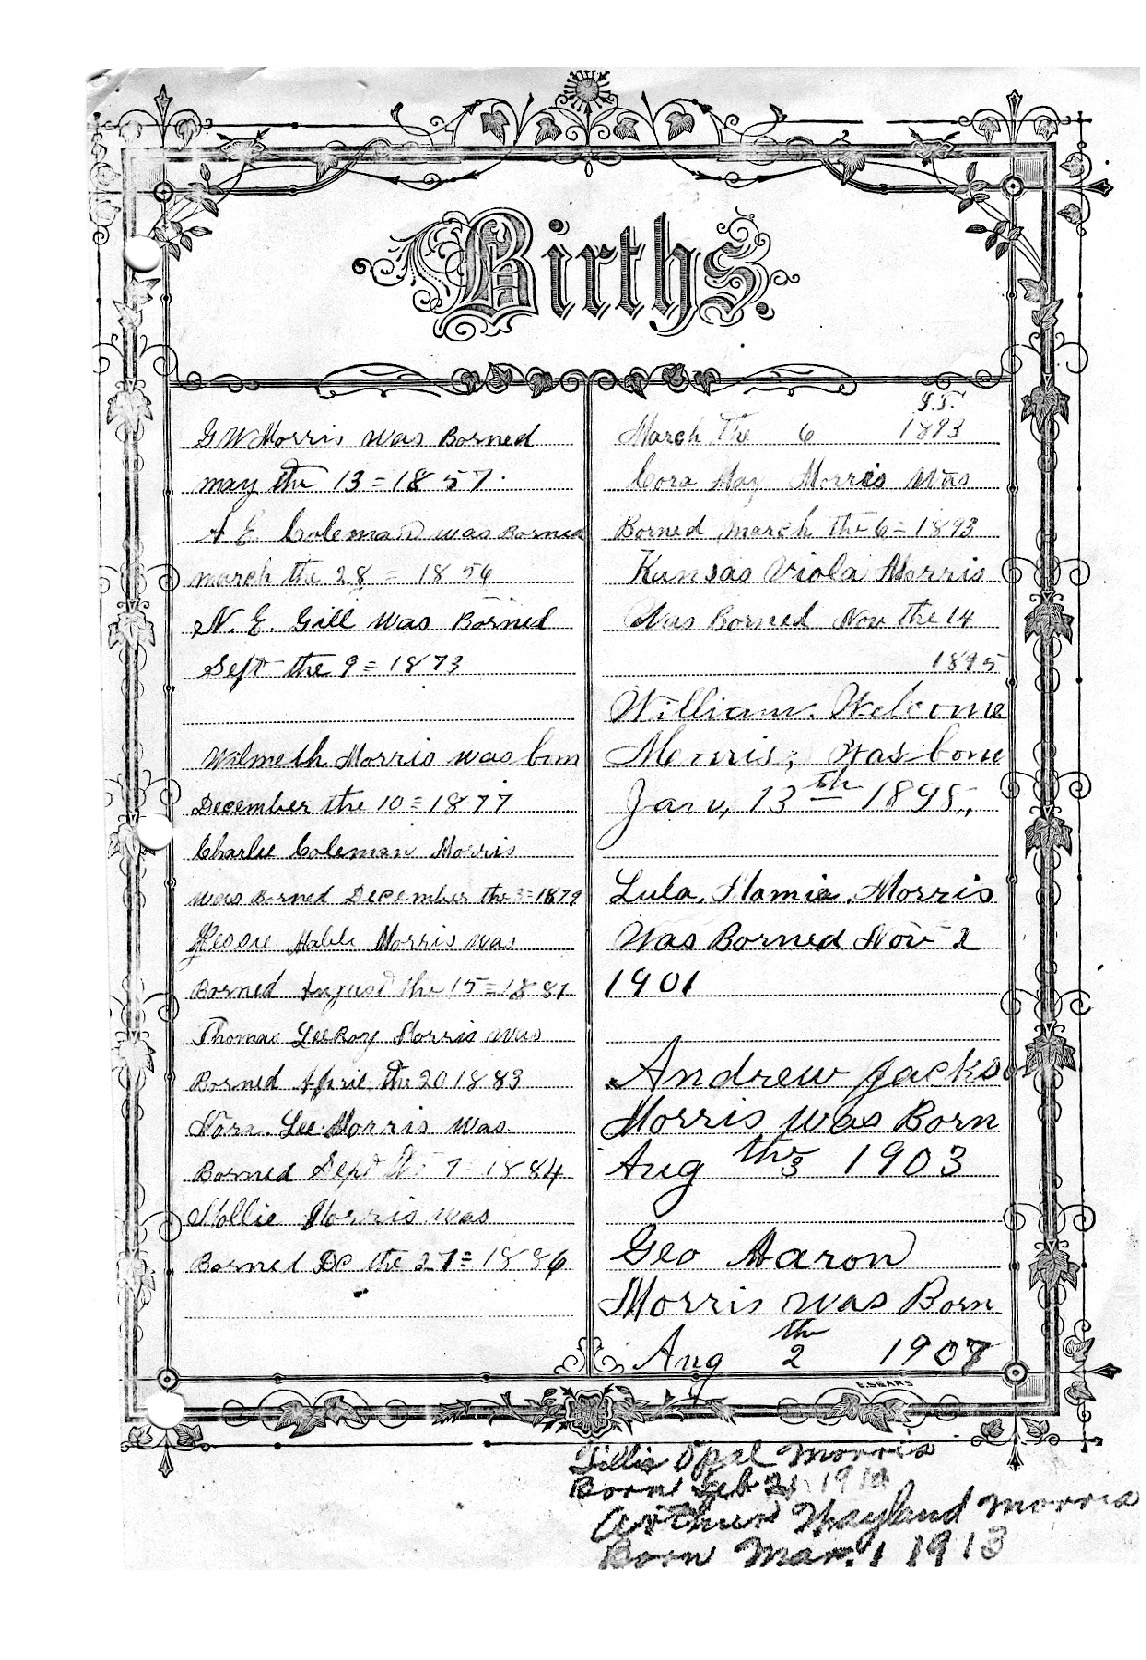 Births.
G W Morris was Borned
may the 13 = 1857.
A E. Coleman was Borned
march the 28 = 1856
N. E. Gill was Borned
Sept the 9 = 1873
Wilmeth Morris was born
December the 10 = 1877
Charlie Coleman Morris
was Borned December the 3 = 1879
Jessie Mable Morris was
Borned August the 15 = 1881
Thomas LeeRoy Morris was
Borned April the 20 1883
Lee Morris was
Borned Sept 7 = 1884
Mollie Morris was
Borned Dc the 27 = 1886
March The 6 1893
Cora May Morris was
Borned march the 6 = 1893
Kansas Viola Morris
Was Borned Nov the 14
1895
William. Welcome
Morris; was bone
Janu, 13th 1898,
Lula. Mamie. Morris
Was Borned Nov 2
1901
Andrew Jackso
Morris was Born
Aug the 3 1903
Geo Aaron
Morris was Born
Aug 2th 1907
Opal Morris
Born Feb 21 1910
Arthur Wayland Morris
Born Mar. 1 1913